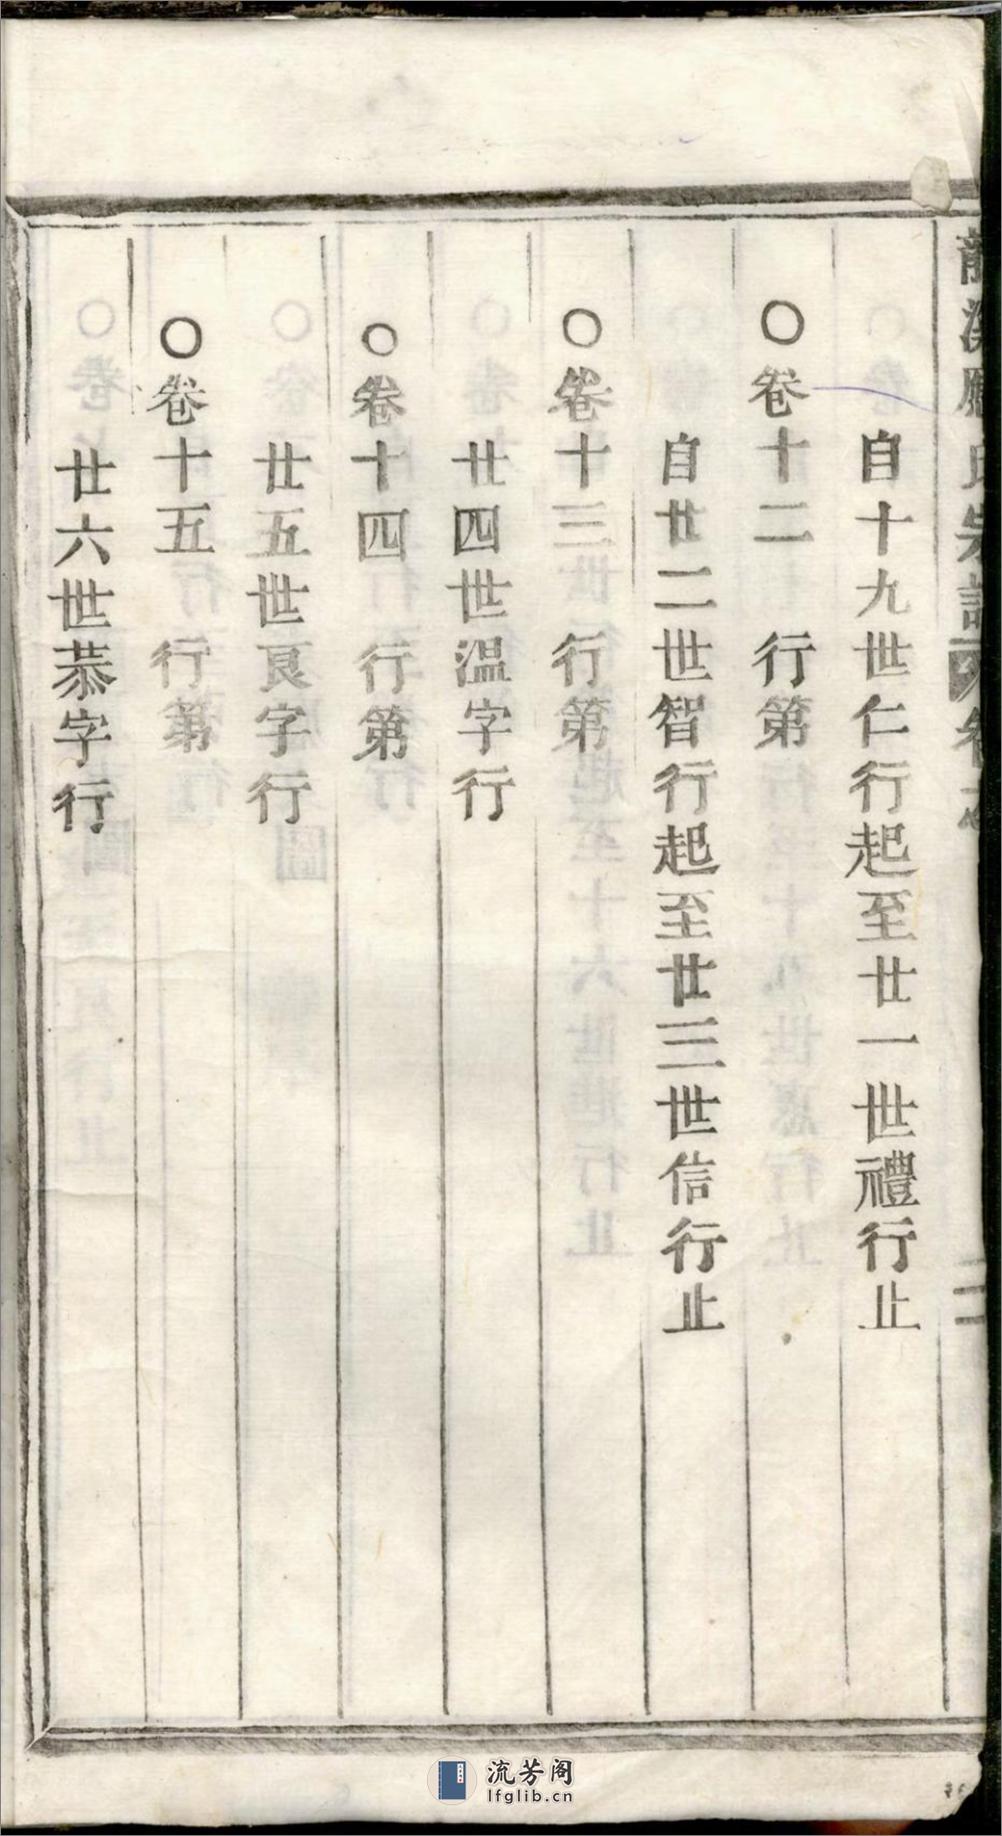 氏宗譜
二
自十九世仁行起至廿一世禮行止
○卷十二 行第
自廿二世智行起至廿三世信行止
○卷十三 行第
廿四世溫字行
○卷十四 行第
廿五世良字行
○卷十五 行第
廿六世恭字行
流芳阁
lfglib.cn